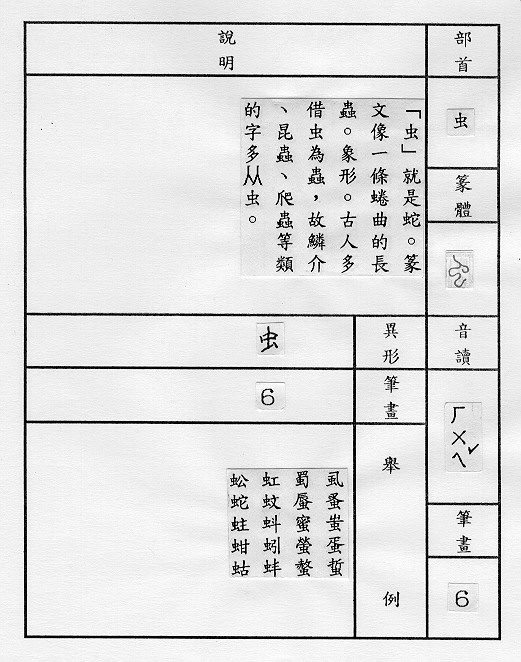 部首
虫
篆體
音讀
ㄏㄨㄟˇ
筆畫
6
說明
「虫」就是蛇。篆
文像一條蜷曲的長
蟲。象形。古人多
借虫為蟲,故鱗介
、昆蟲、爬蟲等類
的字多从虫。
異形
虫
筆畫
6
舉例
虱蚤蚩蛋蜇
蜀蜃蜜螢螯
虹蚊蚪蚓蚌
蚣蛇蛀蚶蛄